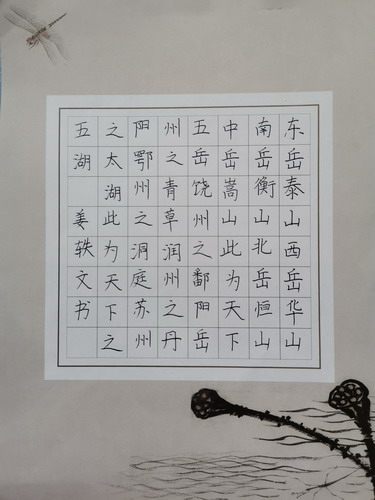 东岳泰山西岳华山
南岳衡山北岳恒山
中岳嵩山此为天下
五岳饶州之鄱阳岳
州之青草润州之丹
阳鄂州之洞庭苏州
之太湖此为天下之
五湖 姜轶文书